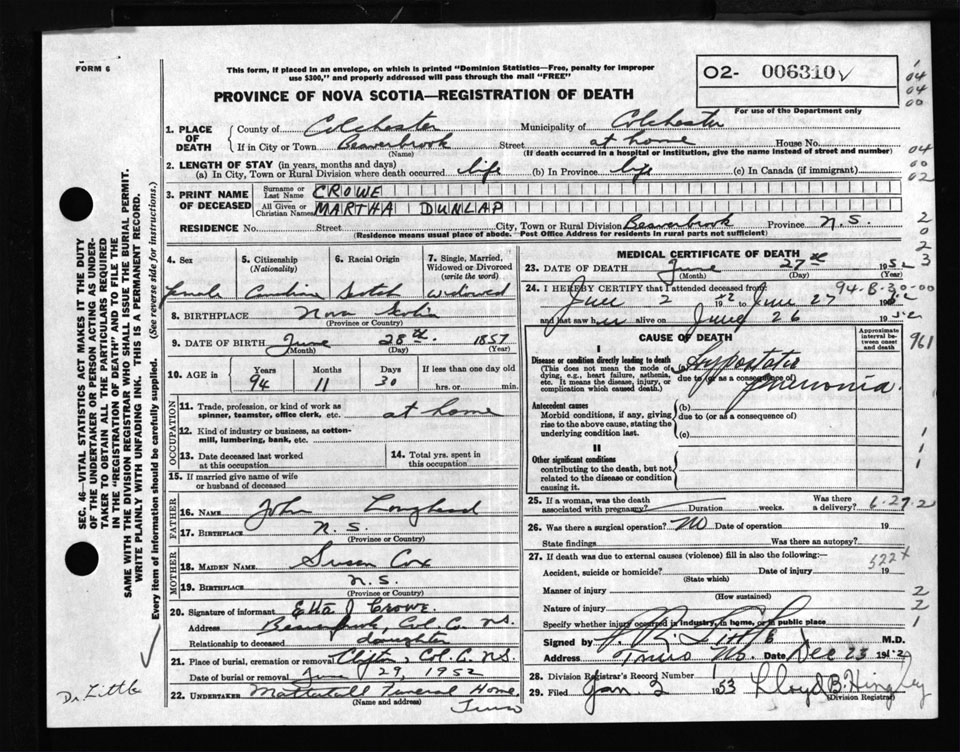 FORM 6
This form, if placed in an envelope, on which is printed "Dominion Statistics—Free, penalty for improper
use $300," and properly addressed will pass through the mail "FREE"
02- 006310
PROVINCE OF NOVA SCOTIA—REGISTRATION OF DEATH
For use of the Department only
1. PLACE OF DEATH
County of Colchester Municipality of Colchester
If in City or Town Beaverbrook Street at home House No.
(Name) (If death occurred in a hospital or institution, give the name instead of street and number)
2. LENGTH OF STAY (in years, months and days)
(a) In City, Town or Rural Division where death occurred life (b) In Province life (c) In Canada (if immigrant)
3. PRINT NAME OF DECEASED
Surname or Last Name CROWE
All Given or Christian Names MARTHA DUNLAP
RESIDENCE No. Street City, Town or Rural Division Beaverbrook Province N.S.
(Residence means usual place of abode. Post Office Address for residents in rural parts not sufficient)
4. Sex
Female
5. Citizenship (Nationality)
Canadian
6. Racial Origin
Scotch
7. Single, Married, Widowed or Divorced (write the word)
Widowed
8. BIRTHPLACE Nova Scotia
(Province or Country)
9. DATE OF BIRTH June 28th 1857
(Month) (Day) (Year)
10. AGE in Years Months Days If less than one day old
94 11 30 hrs. or min.
OCCUPATION
11. Trade, profession, or kind of work as spinner, teamster, office clerk, etc. at home
12. Kind of industry or business, as cotton-mill, lumbering, bank, etc.
13. Date deceased last worked at this occupation
14. Total yrs. spent in this occupation
15. If married give name of wife or husband of deceased
FATHER
16. NAME John Loughead
17. BIRTHPLACE N.S.
(Province or Country)
MOTHER
18. MAIDEN NAME Susan Cox
19. BIRTHPLACE N.S.
(Province or Country)
20. Signature of informant Etta J Crowe
Address Beaverbrook, Col. Co. N.S.
Relationship to deceased daughter
21. Place of burial, cremation or removal Clifton, Col. Co. N.S.
Date of burial or removal June 29, 1952
22. UNDERTAKER Mattatall Funeral Home
(Name and address) Truro
MEDICAL CERTIFICATE OF DEATH
23. DATE OF DEATH June 27th 1952
(Month) (Day) (Year)
24. I HEREBY CERTIFY that I attended deceased from
94-8-30-00
June 2 1952 to June 27 1952
and last saw her alive on June 26 1952
CAUSE OF DEATH
Approximate interval between onset and death
961
I
Disease or condition directly leading to death
(This does not mean the mode of dying, e.g., heart failure, asthenia, etc. It means the disease, injury, or complication which caused death.)
(a) Hypostatic
due to (or as a consequence of) pneumonia.
Antecedent causes
Morbid conditions, if any, giving rise to the above cause, stating the underlying condition last.
(b)
due to (or as a consequence of)
(c)
II
Other significant conditions
contributing to the death, but not related to the disease or condition causing it.
25. If a woman, was the death associated with pregnancy? Duration weeks. Was there a delivery?
6-27-2
26. Was there a surgical operation? No Date of operation 19
State findings Was there an autopsy?
27. If death was due to external causes (violence) fill in also the following: 522X
Accident, suicide or homicide? Date of injury 19
(State which)
Manner of injury
(How sustained)
Nature of injury
Specify whether injury occurred in industry, in home, or in public place
Signed by M.D.
Address Truro N.S. Date Dec 23 1952
28. Division Registrar's Record Number 1
29. Filed Jan. 2 1953 Lloyd B. Hingley
(Division Registrar)
SEC. 46—VITAL STATISTICS ACT MAKES IT THE DUTY
OF THE UNDERTAKER OR PERSON ACTING AS UNDER-
TAKER TO OBTAIN ALL THE PARTICULARS REQUIRED
IN THE "REGISTRATION OF DEATH" AND TO FILE THE
SAME WITH THE DIVISION REGISTRAR WHO SHALL ISSUE THE BURIAL PERMIT.
WRITE PLAINLY WITH UNFADING INK. THIS IS A PERMANENT RECORD.
Every item of information should be carefully supplied. (See reverse side for instructions.)
Dr Little